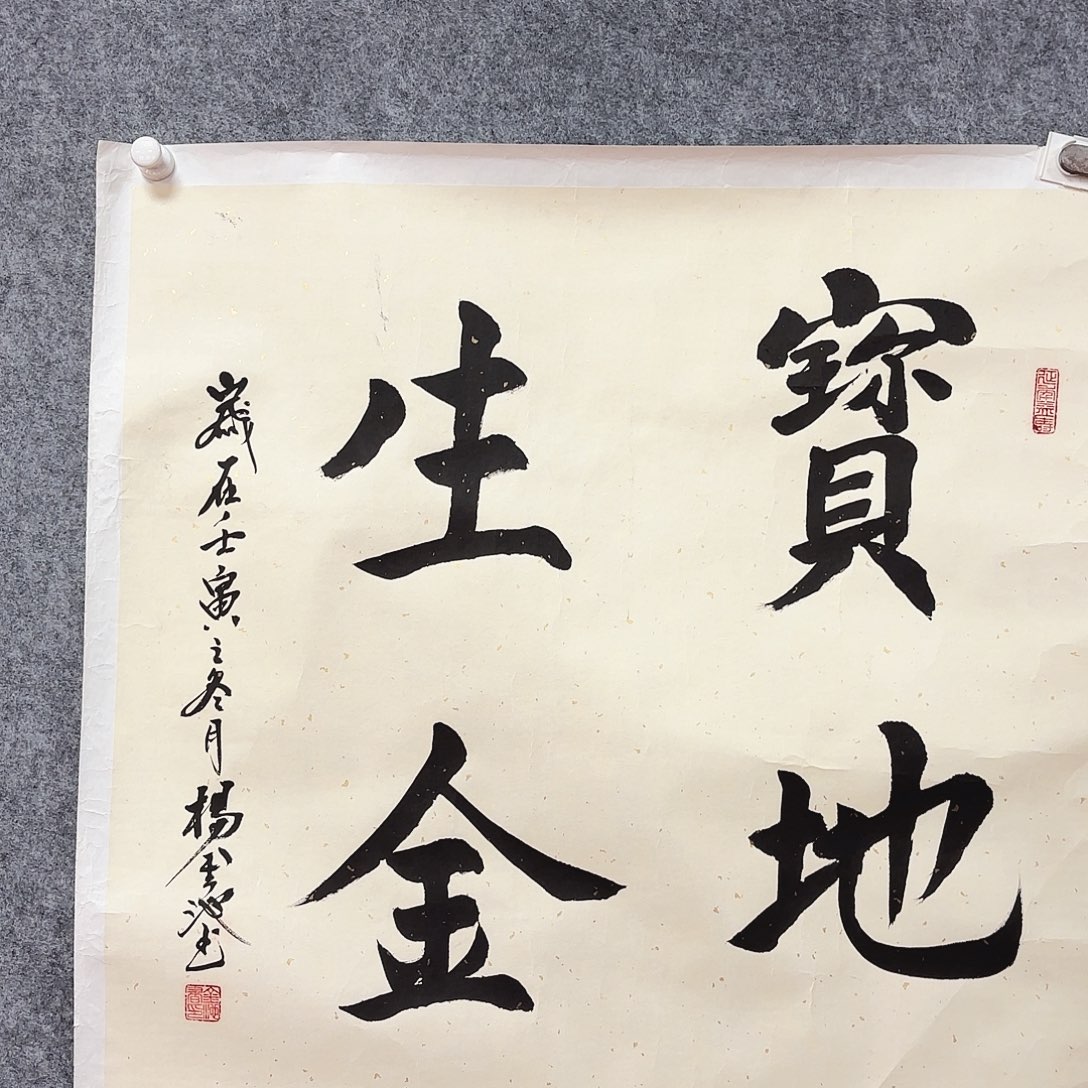 寶地
生金
歲在壬寅之冬月楊金池書